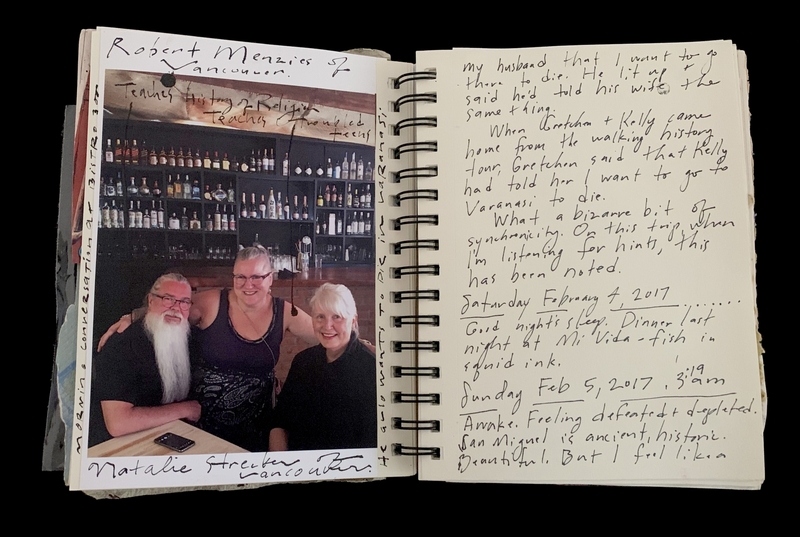 Robert Menzies of
Vancouver.
Teaches History of Religion
Teaches troubled
teens
MORNING CONVERSATION at BISTRO
HE WANTS TO DIE IN VARANASI
Natalie Strecker of
Vancouver.
my husband that I want to go
there to die. He lit up +
said he'd told his wife the
same thing.
When Gretchen + Kelly came
home from the walking history
tour, Gretchen said that Kelly
had told her I want to go to
Varanasi to die.
What a bizarre bit of
synchronicity. On this trip, when
I'm listening for hints, this
has been noted.
Saturday February 4, 2017 .......
Good night's sleep. Dinner last
night at Mi Vida - fish in
squid ink.
Sunday Feb 5, 2017. 3:19 am
Awake. Feeling defeated + depleted.
San Miguel is ancient, historic.
Beautiful. But I feel like a